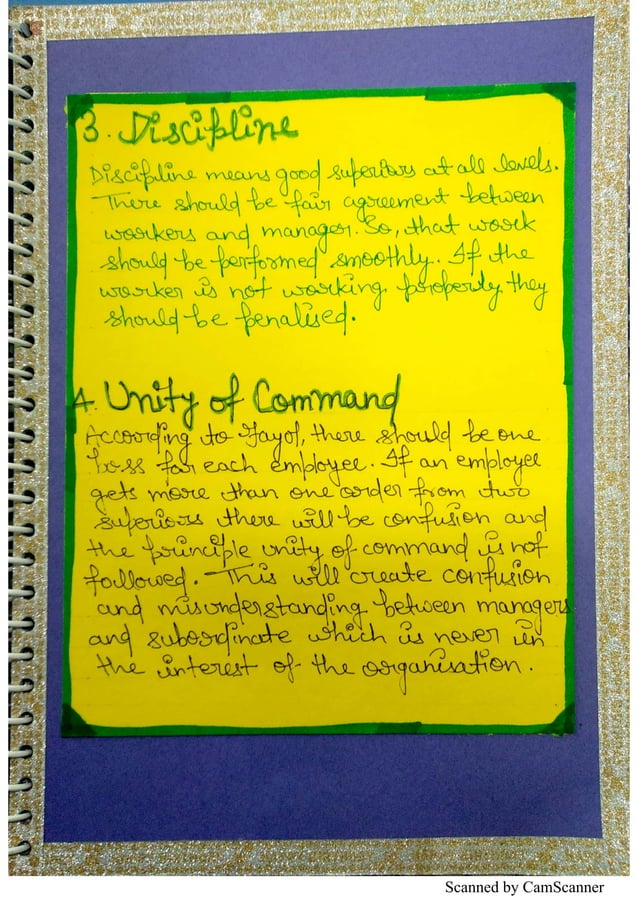 3. Discipline
Discipline means good superiors at all levels.
There should be fair agreement between
workers and manager. So, that work
should be performed smoothly. If the
worker is not working properly they
should be penalised.
4. Unity of Command
According to Fayol, there should be one
boss for each employee. If an employee
gets more than one order from two
superiors there will be confusion and
the principle unity of command is not
followed. This will create confusion
and misunderstanding between managers
and subordinate which is never in
the interest of the organisation.
Scanned by CamScanner